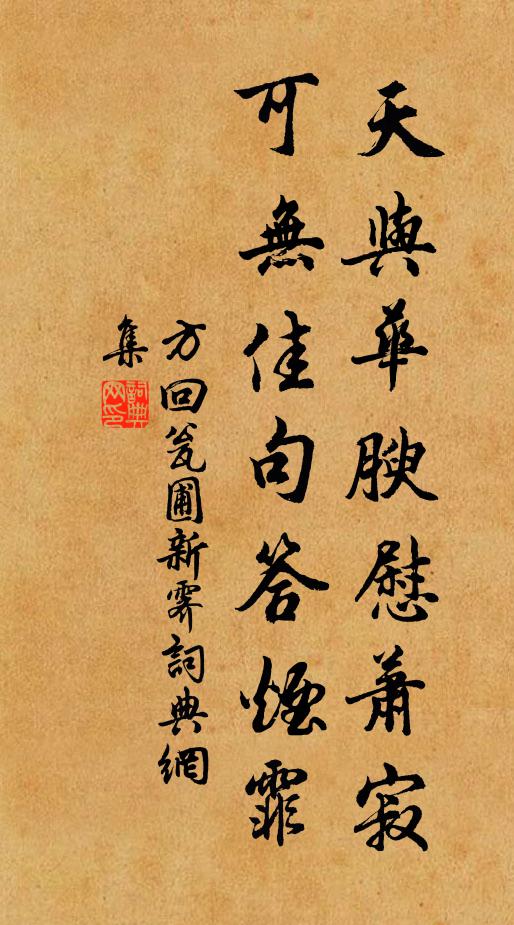 天與華腴慰蕭寂
可無佳句答煙霏
方回瓮圃新霽詞典網
集
詞典網印